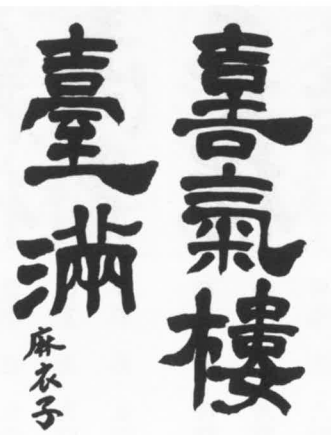 喜氣樓
臺滿
麻衣子